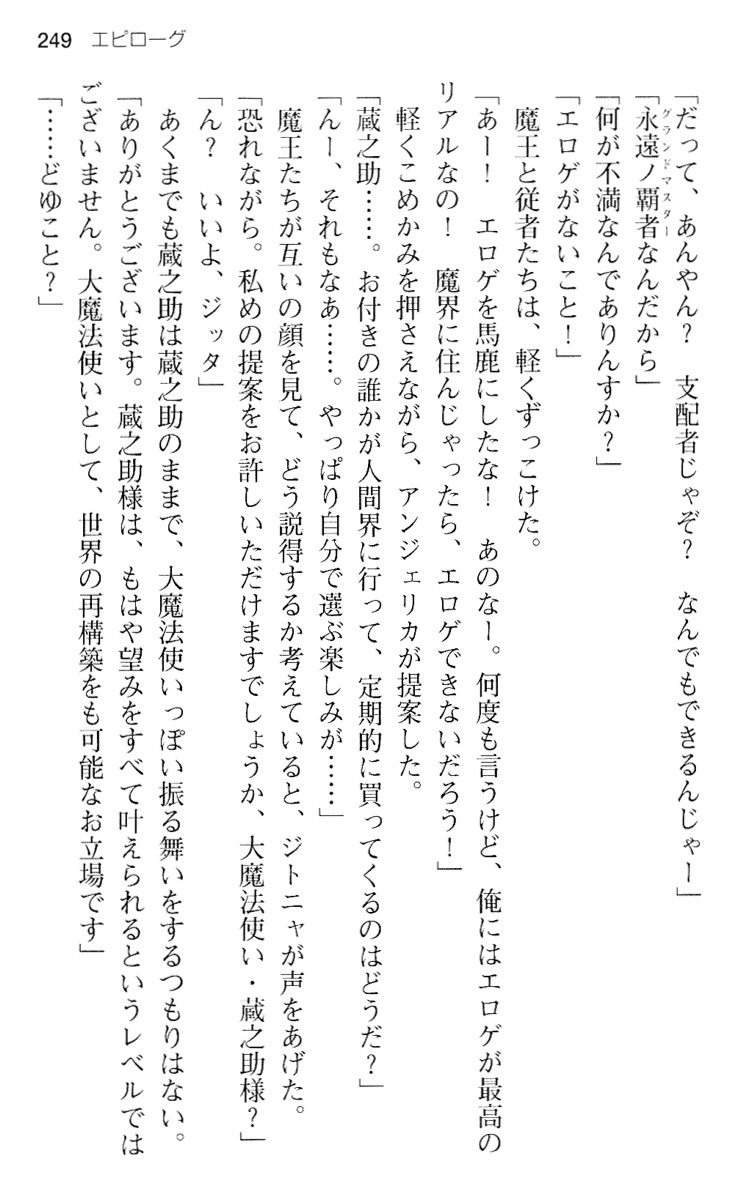 249 エピローグ
「だって、あんやん？　支配者じゃぞ？　なんでもできるんじゃー」
「永遠ノ覇者なんだから」
グランドマスター
「何が不満なんでありんすか？」
「エロゲがないこと！」
　魔王と従者たちは、軽くずっこけた。
「あー！　エロゲを馬鹿にしたな！　あのなー。何度も言うけど、俺にはエロゲが最高の
リアルなの！　魔界に住んじゃったら、エロゲできないだろう！」
　軽くこめかみを押さえながら、アンジェリカが提案した。
「蔵之助……。お付きの誰かが人間界に行って、定期的に買ってくるのはどうだ？」
「んー、それもなあ……。やっぱり自分で選ぶ楽しみが……」
　魔王たちが互いの顔を見て、どう説得するか考えていると、ジトニャが声をあげた。
「恐れながら。私めの提案をお許しいただけますでしょうか、大魔法使い・蔵之助様？」
「ん？　いいよ、ジッタ」
　あくまでも蔵之助は蔵之助のままで、大魔法使いっぽい振る舞いをするつもりはない。
「ありがとうございます。蔵之助様は、もはや望みをすべて叶えられるというレベルでは
ございません。大魔法使いとして、世界の再構築をも可能なお立場です」
「……どゆこと？」